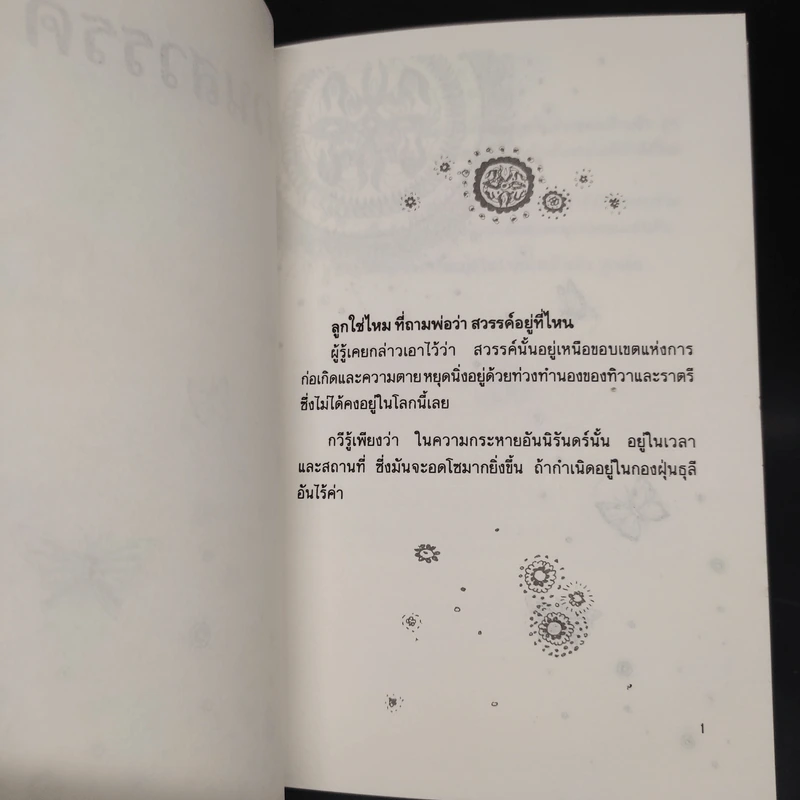 ลูกใช่ไหม ที่ถามพ่อว่า สวรรค์อยู่ที่ไหน
ผู้รู้เคยกล่าวเอาไว้ว่า สวรรค์นั้นอยู่เหนือขอบเขตแห่งการ
ก่อเกิดและความตาย หยุดนิ่งอยู่ด้วยท่วงทำนองของทิวาและราตรี
ซึ่งไม่ได้คงอยู่ในโลกนี้เลย
กวีรู้เพียงว่า ในความกระหายอันนิรันดร์นั้น อยู่ในเวลา
และสถานที่ ซึ่งมันจะอดโซมากยิ่งขึ้น ถ้ากำเนิดอยู่ในกองฝุ่นธุลี
อันไร้ค่า
1